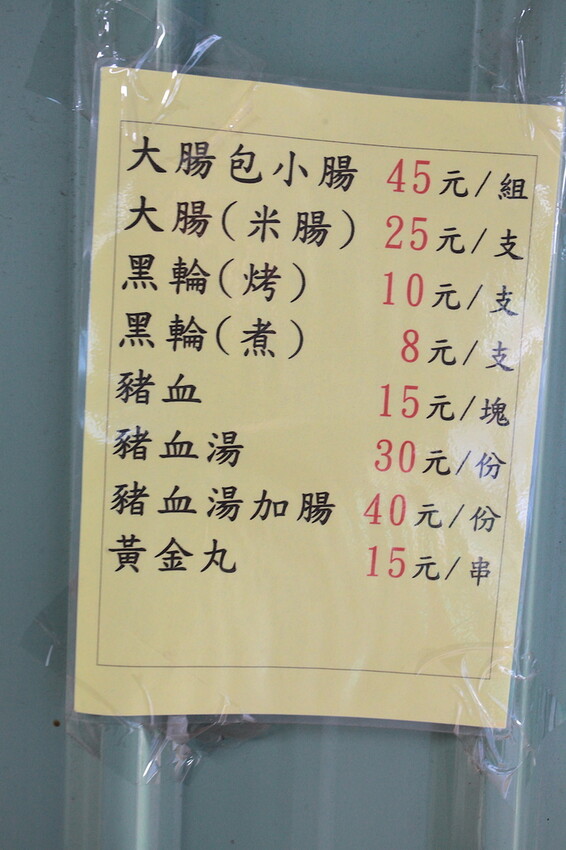 大腸包小腸 45元/組
大腸(米腸) 25元/支
黑輪(烤) 10元/支
黑輪(煮) 8元/支
豬血 15元/塊
豬血湯 30元/份
豬血湯加腸 40元/份
黃金丸 15元/串